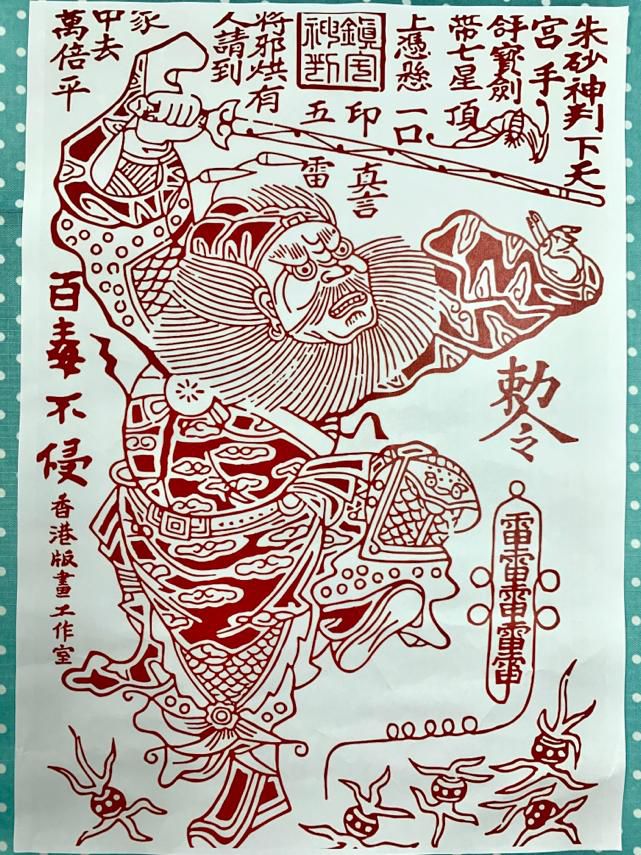 朱砂神判下天
宮手
舒寶劍
帶七星頂
上憑懸
一口
印
真言
五
雷
鎮宅
神判
將邪烘有
人請到
甲去
萬倍平
百毒不侵
香港版畫工作室
勅令
雷雷雷雷雷